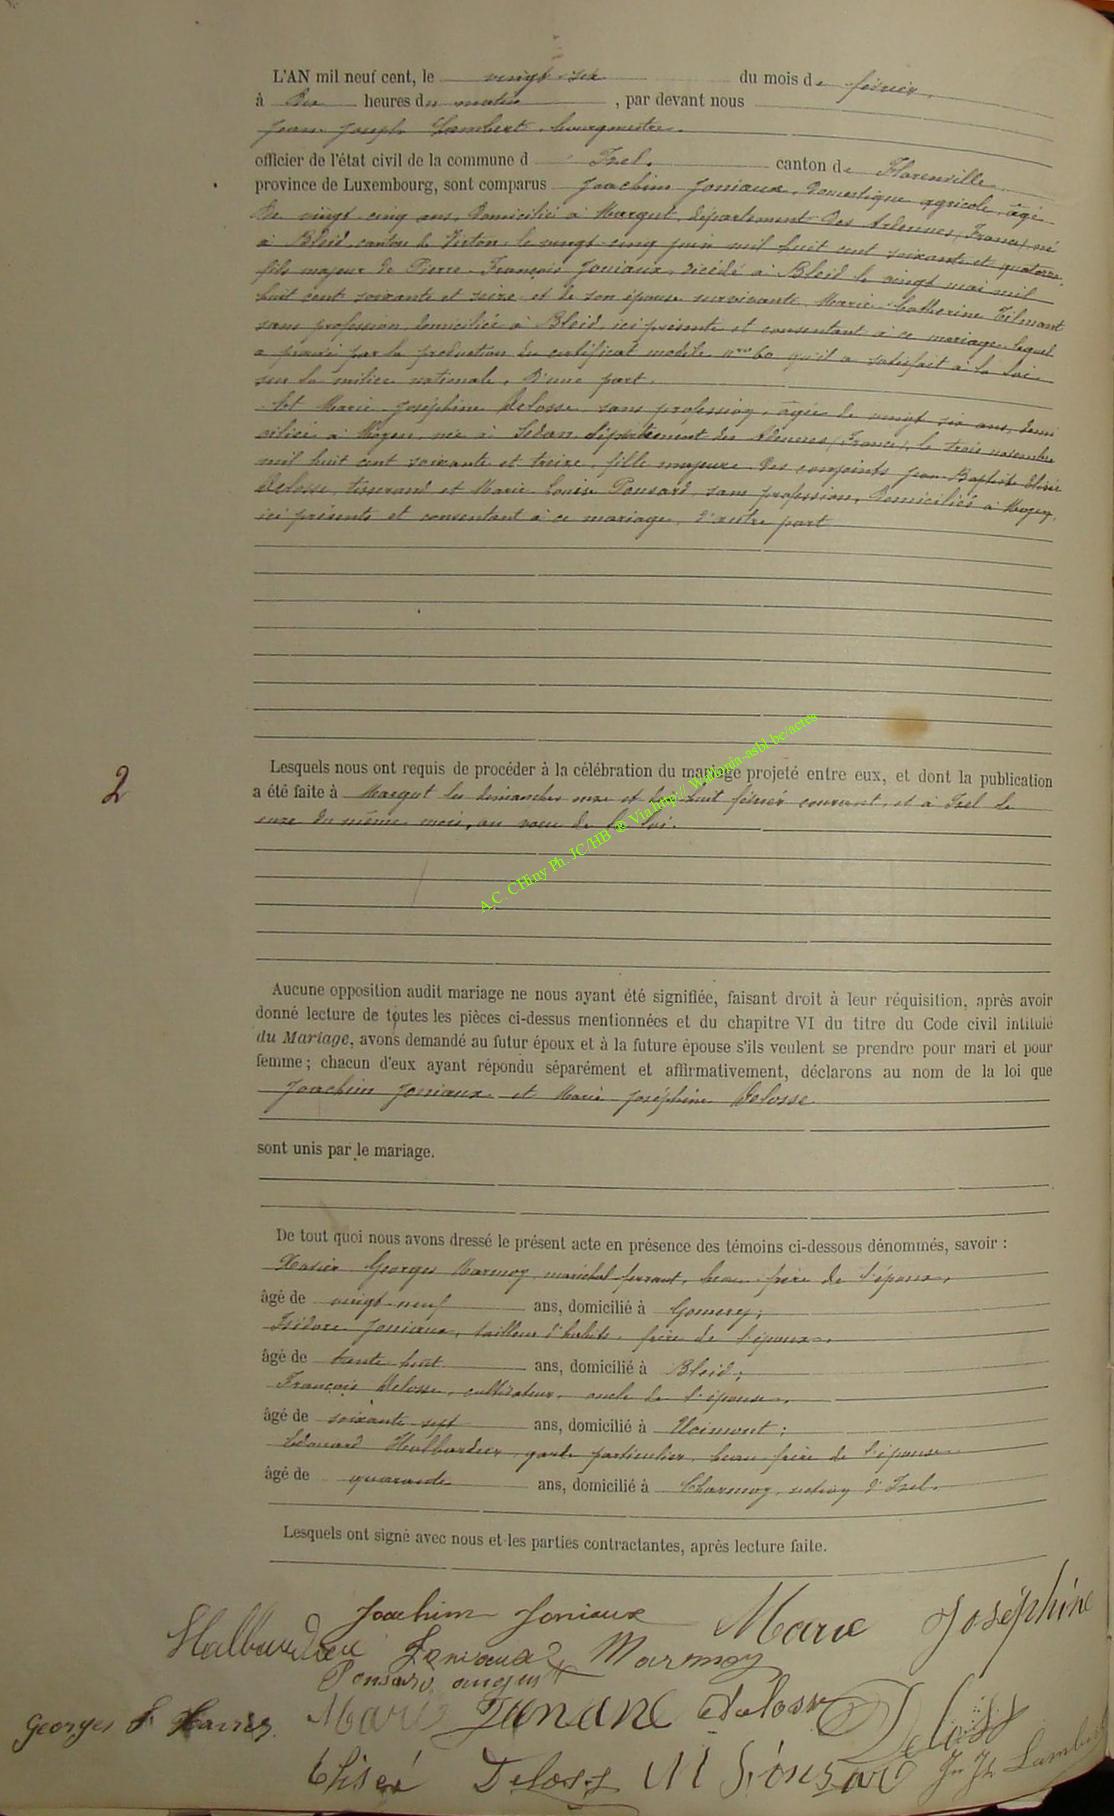 L'AN mil neuf cent, le vingt-six du mois de février,
à dix heures du matin, par devant nous
Jean Joseph Lambert, bourgmestre,
officier de l'état civil de la commune d Izel, canton de Florenville
province de Luxembourg, sont comparus Joachim Joniaux, domestique agricole, âgé
de vingt cinq ans, domicilié à Margut, département des Ardennes (France), né
à Bleid, canton de Virton, le vingt-cinq juin mil huit cent soixante et quatorze,
fils majeur de Pierre-François Joniaux, décédé à Bleid le vingt mai mil
huit cent soixante et seize et de son épouse survivante Marie-Catherine Tilmant
sans profession, domiciliée à Bleid, ici présente et consentant à ce mariage, lequel
a prouvé par la production du certificat modèle nro 60 qu'il a satisfait à la loi
sur la milice nationale, d'une part.
Et Marie Joséphine Delosse, sans profession, âgée de vingt six ans, domi
ciliée à Moyen, née à Sedan, département des Ardennes (France), le trois novembre
mil huit cent soixante et treize, fille majeure des conjoints Jean-Baptiste Elisée
Delosse, tisserand et Marie Louise Ponsard, sans profession, domiciliés à Moyen,
ici présents et consentant à ce mariage, d'autre part
2
Lesquels nous ont requis de procéder à la célébration du mariage projeté entre eux, et dont la publication
a été faite à Margut les dimanches onze et dix-huit février courant, et à Izel le
onze du même mois, au vœu de la loi.
A.C. CHiny Ph. JC/HB © Via http:// Wallonia-asbl-be/actes
Aucune opposition audit mariage ne nous ayant été signifiée, faisant droit à leur réquisition, après avoir
donné lecture de toutes les pièces ci-dessus mentionnées et du chapitre VI du titre du Code civil intitulé
du Mariage, avons demandé au futur époux et à la future épouse s'ils veulent se prendre pour mari et pour
femme ; chacun d'eux ayant répondu séparément et affirmativement, déclarons au nom de la loi que
Joachim Joniaux et Marie Joséphine Delosse
sont unis par le mariage.
De tout quoi nous avons dressé le présent acte en présence des témoins ci-dessous dénommés, savoir :
Xavier Georges Marmoy, maréchal ferrant, beau-frère de l'époux,
âgé de vingt-neuf ans, domicilié à Gomery ;
Isidore Joniaux, tailleur d'habits, frère de l'époux,
âgé de trente huit ans, domicilié à Bleid ;
François Delosse, cultivateur, oncle de l'épouse,
âgé de soixante-sept ans, domicilié à ;
Edouard Halbardier, garde particulier, beau-frère de l'épouse
âgé de quarante ans, domicilié à Charmoy, section d'Izel.
Lesquels ont signé avec nous et les parties contractantes, après lecture faite.
Joachim Joniaux Marie Joséphine
Joniaux Marmoy
Ponsard
Georges Marie Delosse
Elisée Delosse M Ponsard Jn Jh Lambert